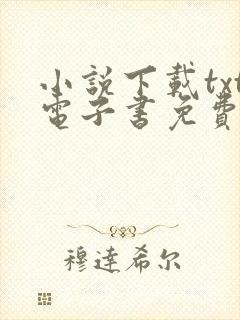 小說下載txt
電子書免費
穆達希尔